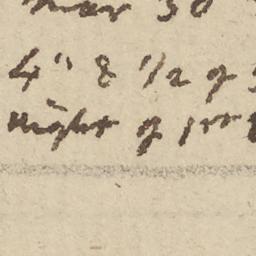 Mar 30
4" & 1/2 of
Night of 1st